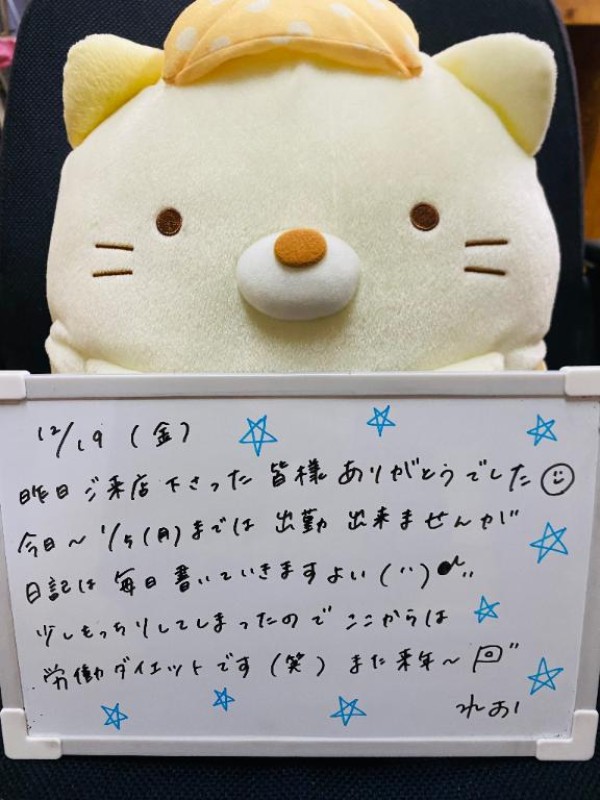 12/19 (金)
昨日ご来店下さった皆様ありがとうでした
今日〜1/5(月)までは出勤出来ませんが
日記は毎日書いていきますよい
少しもっちりしてしまったのでここからは
労働ダイエットです(笑) また来年〜
れおん